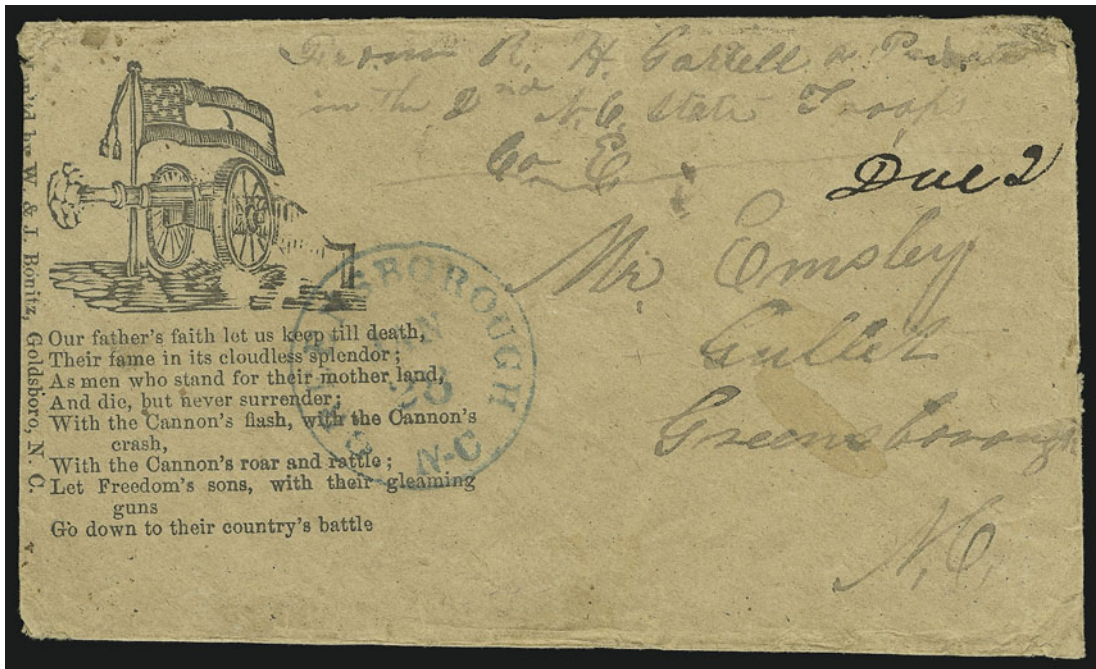 From R. H. Gartell a Private
in the 2nd N.C. State Troops
Co E
Due 2
Mr Emsley
Gullet
Greensborough
N.C.
GREENSBOROUGH
JAN
28
N-C
W. & J. Bonitz, Goldsboro, N. C.
Our father's faith let us keep till death,
Their fame in its cloudless splendor;
As men who stand for their mother land,
And die, but never surrender;
With the Cannon's flash, with the Cannon's
crash,
With the Cannon's roar and rattle;
Let Freedom's sons, with their gleaming
guns
Go down to their country's battle